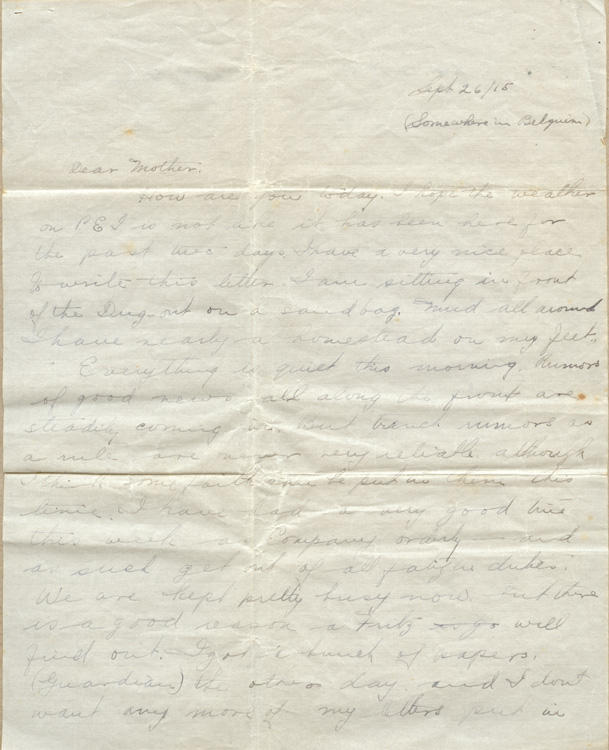 Sept 26/15
(Somewhere in Belguim)
Dear Mother.
How are you today. I hope the weather
on P.E.I is not like it has been here for
the past two days. I have a very nice place
to write this letter. I am sitting in front
of the Dug-out on a sandbag. Mud all around
I have nearly a homestead on my feet.
Everything is quiet this morning. Rumors
of good news all along the front are
steadily coming in. But trench rumors as
a rule are never very reliable although
I think some faith can be put in them this
time. I have had a very good time
this week as Company orderly — and
as such get out of all fatigue duties.
We are kept pretty busy now. But there
is a good reason a Fritz so go will
find out. I got a bunch of papers.
(Guardians) the other day. and I dont
want any more of my letters put in